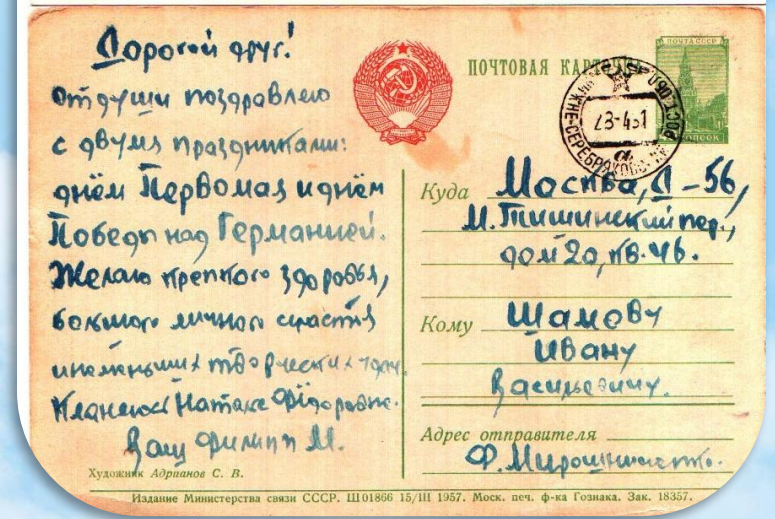 Дорогой друг!
От души поздравляю
с двумя праздниками:
днём Первомая и днём
Победы над Германией.
Желаю крепкого здоровья,
большого личного счастья
и неменьших творческих удач.
Кланяюсь Наталье Фёдоровне.
Ваш Филипп М.
Художник Адрианов С. В.
ПОЧТОВАЯ КАРТОЧКА
ПОЧТА СССР
23-4
Куда Москва, Д-56,
М. Тишинский пер.,
дом 20, кв. 46.
Кому Шамову
Ивану
Васильевичу.
Адрес отправителя
Ф. Мирошниченко.
Издание Министерства связи СССР. Ш01866 15/III 1957. Моск. печ. ф-ка Гознака. Зак. 18357.